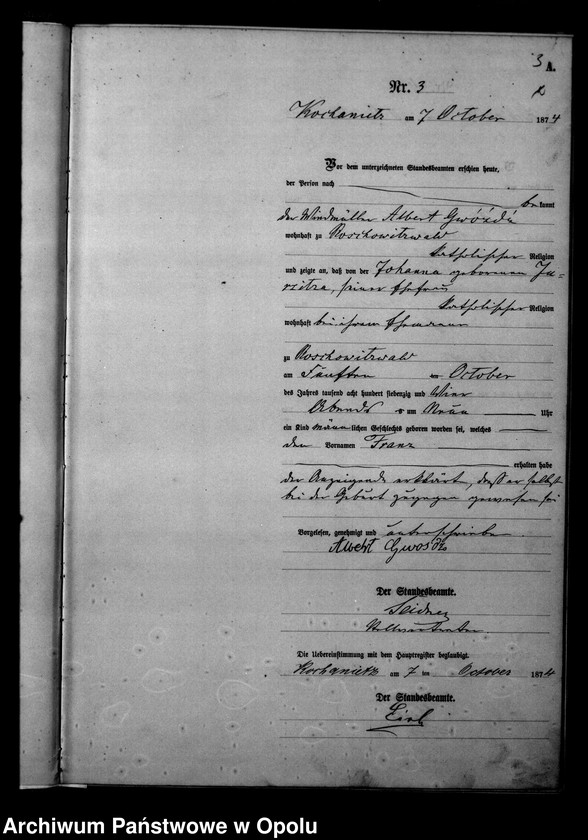 3 A.
Nr. 3
Kochanietz am 7 October 1874
Vor dem unterzeichneten Standesbeamten erschien heute,
der Person nach
bekannt
der Windmüller Albert Gwóźdź
wohnhaft zu Roschowitzwald
katholischer Religion
und zeigte an, daß von der Johanna geborenen
seiner Ehefrau
katholischer Religion
wohnhaft bei ihrem Ehemann
zu Roschowitzwald
am Fünften ten October
des Jahres tausend acht hundert siebenzig und Vier
Abends um Neun Uhr
ein Kind männlichen Geschlechts geboren worden sei, welches
den Vornamen Franz
erhalten habe
der Anzeigende erklärt, daß er selbst
bei der Geburt zugegen gewesen sei
Vorgelesen, genehmigt und unterschrieben.
Albert
Der Standesbeamte.
Die Uebereinstimmung mit dem Hauptregister beglaubigt.
Kochanietz am 7 ten October 1874
Der Standesbeamte.
Archiwum Państwowe w Opolu